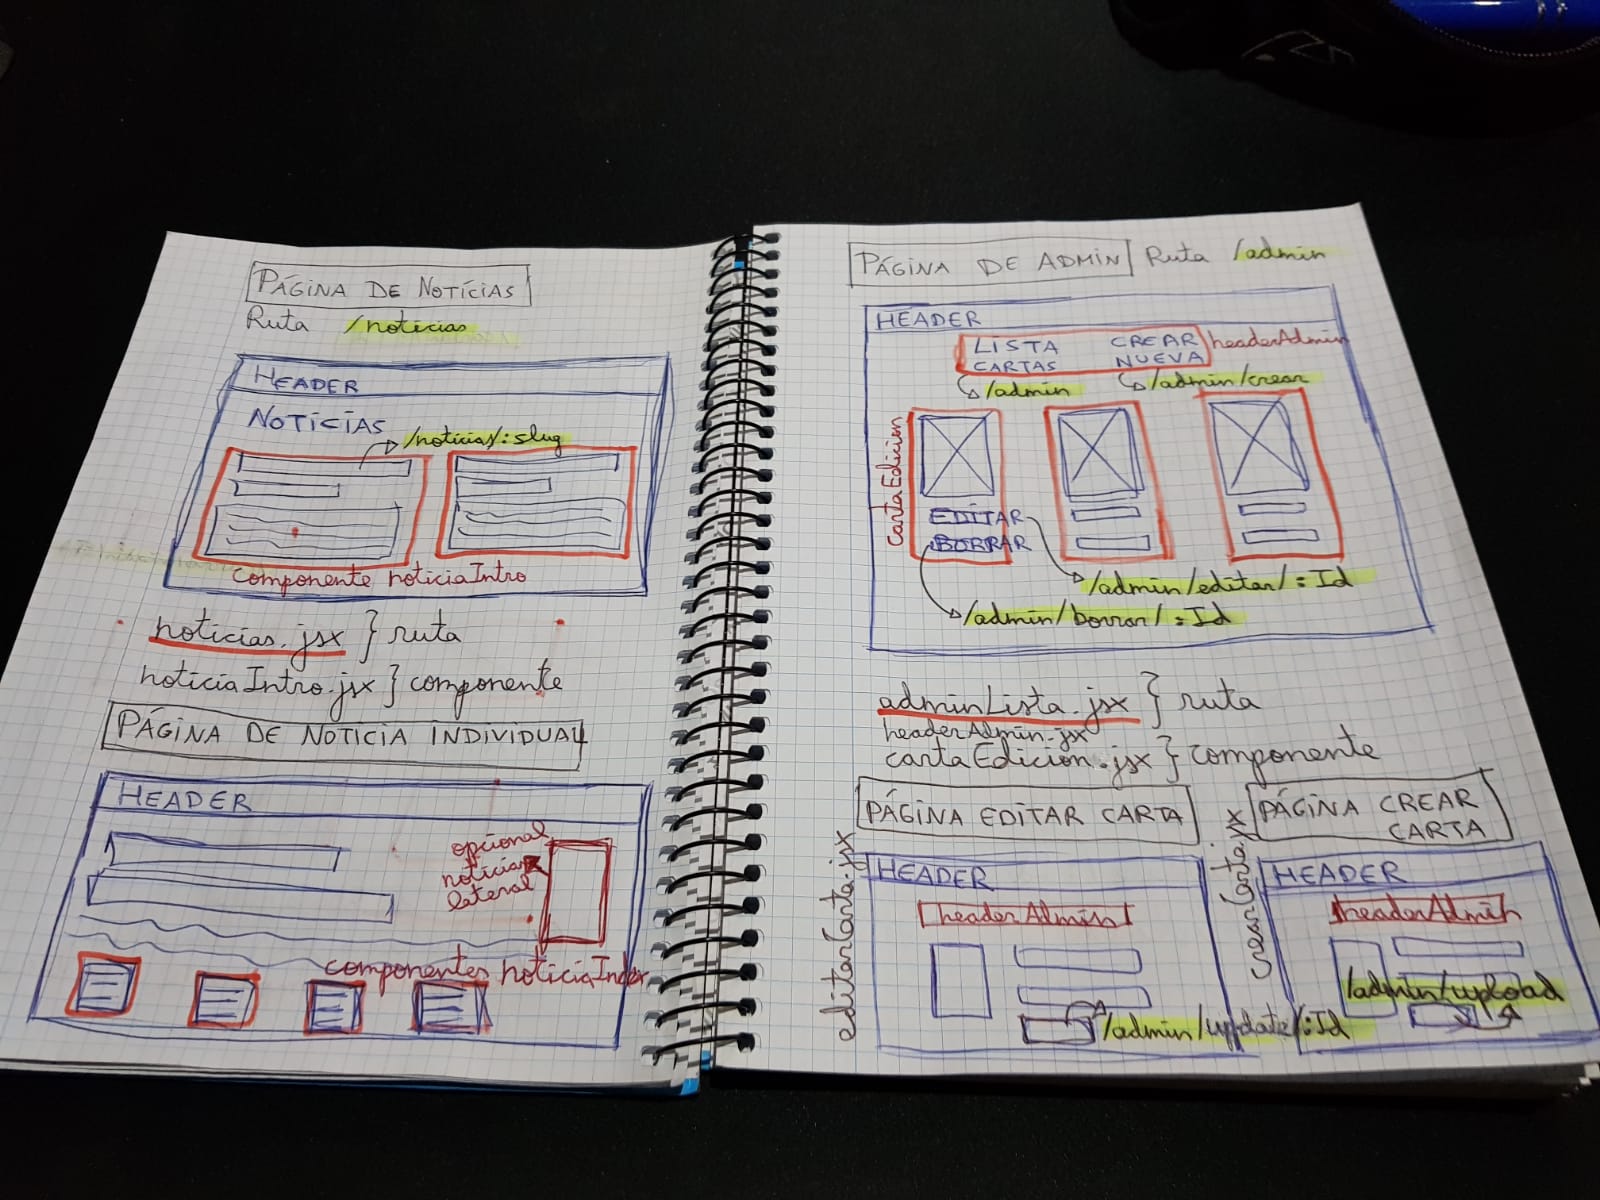 PÁGINA DE NOTÍCIAS
Ruta /noticias
HEADER
NOTÍCIAS
/noticias/:slug
componente noticiaIntro
noticias.jsx } ruta
noticiaIntro.jsx } componente
PÁGINA DE NOTICIA INDIVIDUAL
HEADER
opcional
noticia
lateral
componentes noticiaIndex
PÁGINA DE ADMIN Ruta /admin
HEADER
LISTA CREAR headerAdmin
CARTAS NUEVA
/admin /admin/crear
cartaEdicion
EDITAR
BORRAR
/admin/editar/:Id
/admin/borrar/:Id
adminLista.jsx } ruta
headerAdmin.jsx
cartaEdicion.jsx } componente
PÁGINA EDITAR CARTA
editarCarta.jsx
HEADER
headerAdmin
/admin/update/:Id
PÁGINA CREAR
CARTA
crearCarta.jsx
HEADER
headerAdmin
/admin/upload